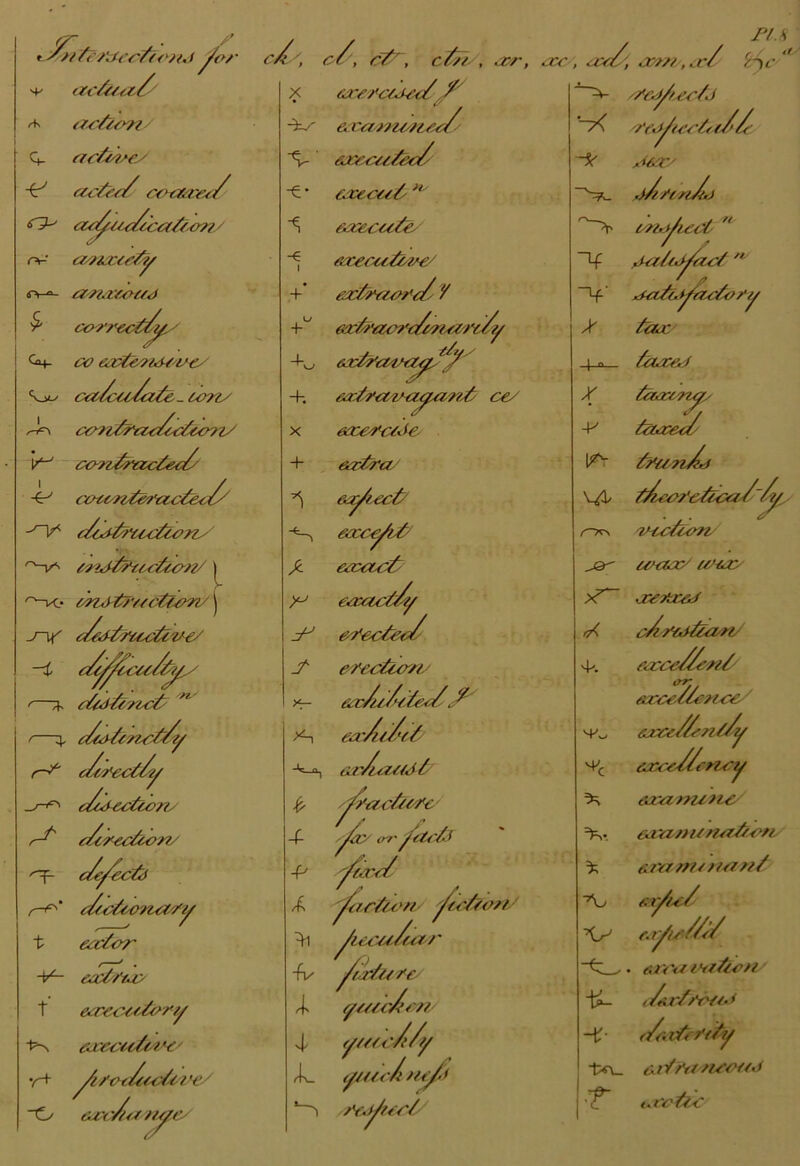 Pl. 8
Intersections for ck, cl, ct, ctn, xr, xc, xd, xm, xl &c
actual
action
active
acted coaxed
adjudication
anxiety
anxious
correctly
co extensive
calculate - ion
contradiction
contracted
counteracted
distruction
instruction
instruction
destructive
difficulty
distinct n
distinctly
directly
disection
direction
defects
dictionary
extor
extrix
executory
executive
productive
exchange
exercised f
examined
executed
execut n
execute
executive
extraord y
extraordinarily
extravag tly f
extravagant ce
exercise
extra
expect
except
exact
exactly
erected
erection
exhibited f
exhibit
exhaust
fracture
fix or facts
fixed
faction fiction
peculiar
fixture
quicken
quickly
quick ness
respect
respects
respectable
sex
shrinks
inspect n
satisfact n
satisfactory
tax
taxes
taxing
taxed
trunks
theoretical-ly
viction
wax wix
xerxes
christian
excellent
or
excellence
excellently
excellency
examine
examination
examinant
expel
expelld
excavation
dextrous
dexterity
extraneous
exotic